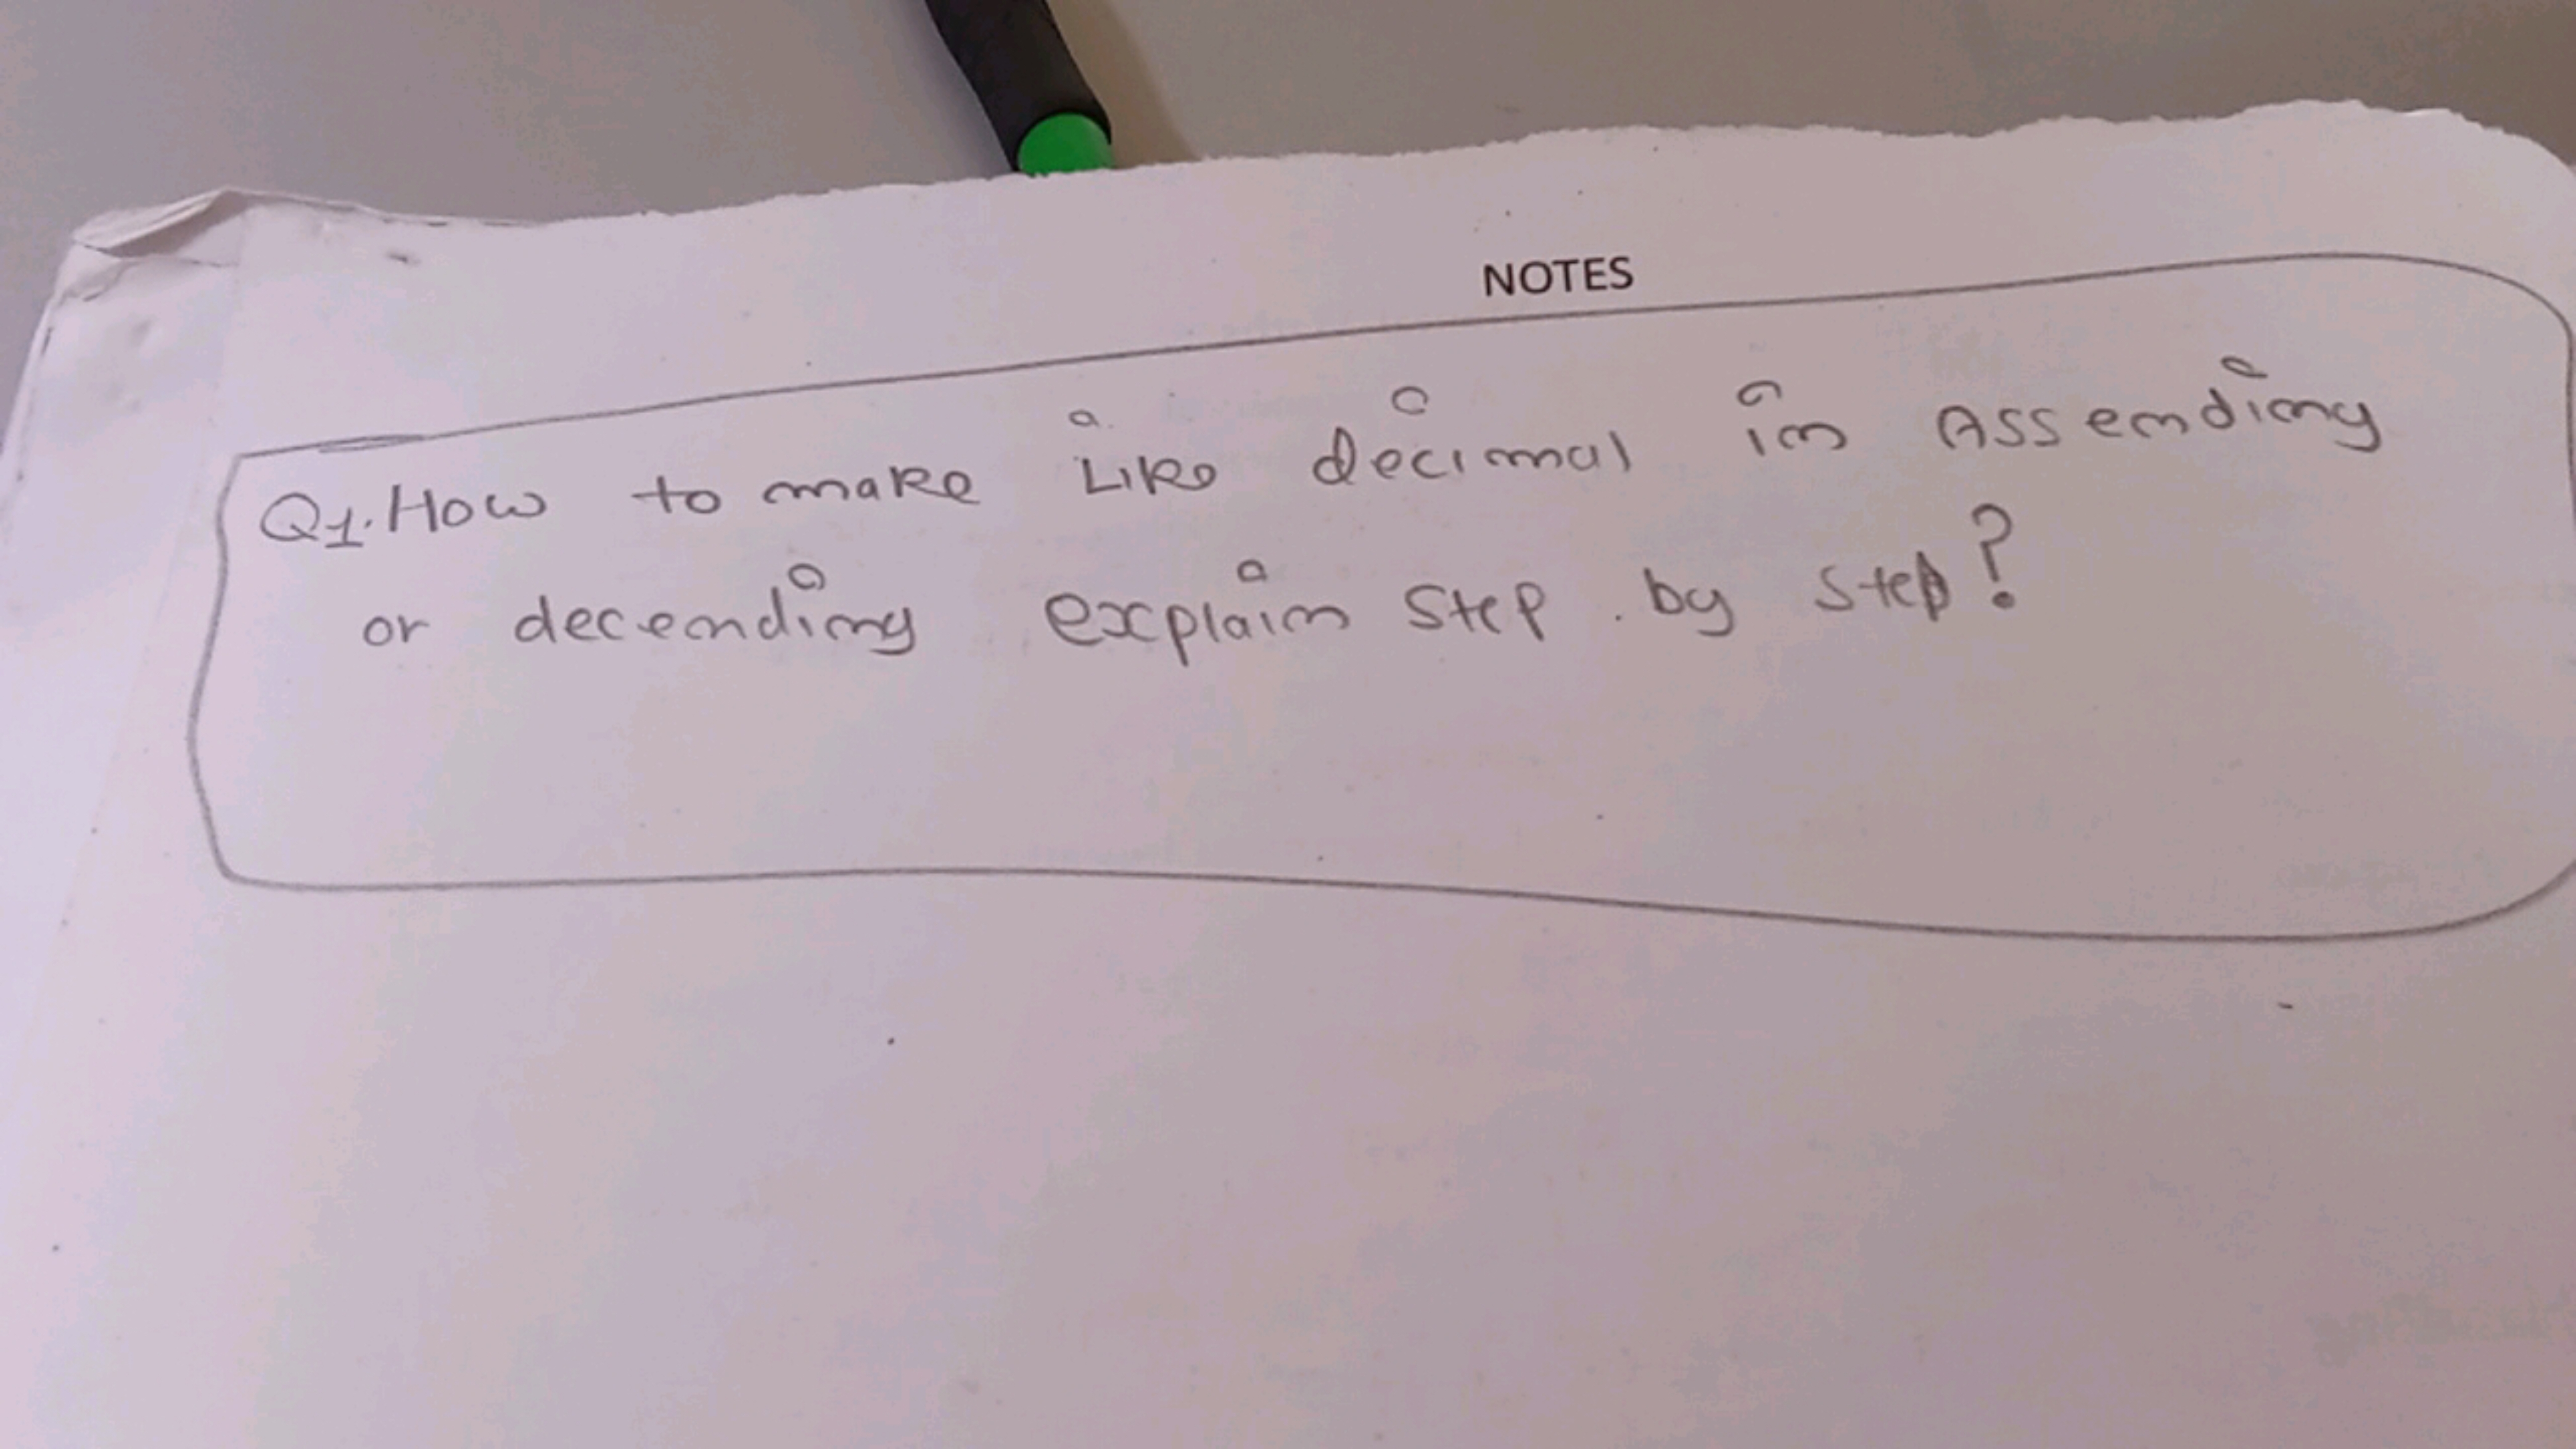 NOTES
Q1. How to make Like decimal in Assending
or decending explain Step by step?